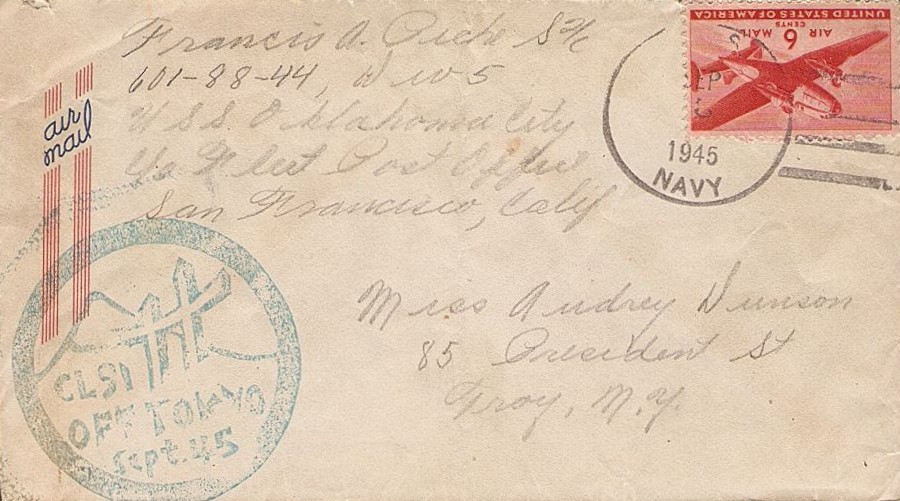 Francis A. Piche S2/c
601-88-44, Div 5
USS Oklahoma City
c/o Fleet Post Office
San Francisco, Calif
air
mail
UNITED STATES OF AMERICA
6 CENTS
AIR MAIL
SEP
1945
NAVY
Miss Audrey Dunson
85 President St
Troy, N.Y.
OFF TOKYO
Sept. 45